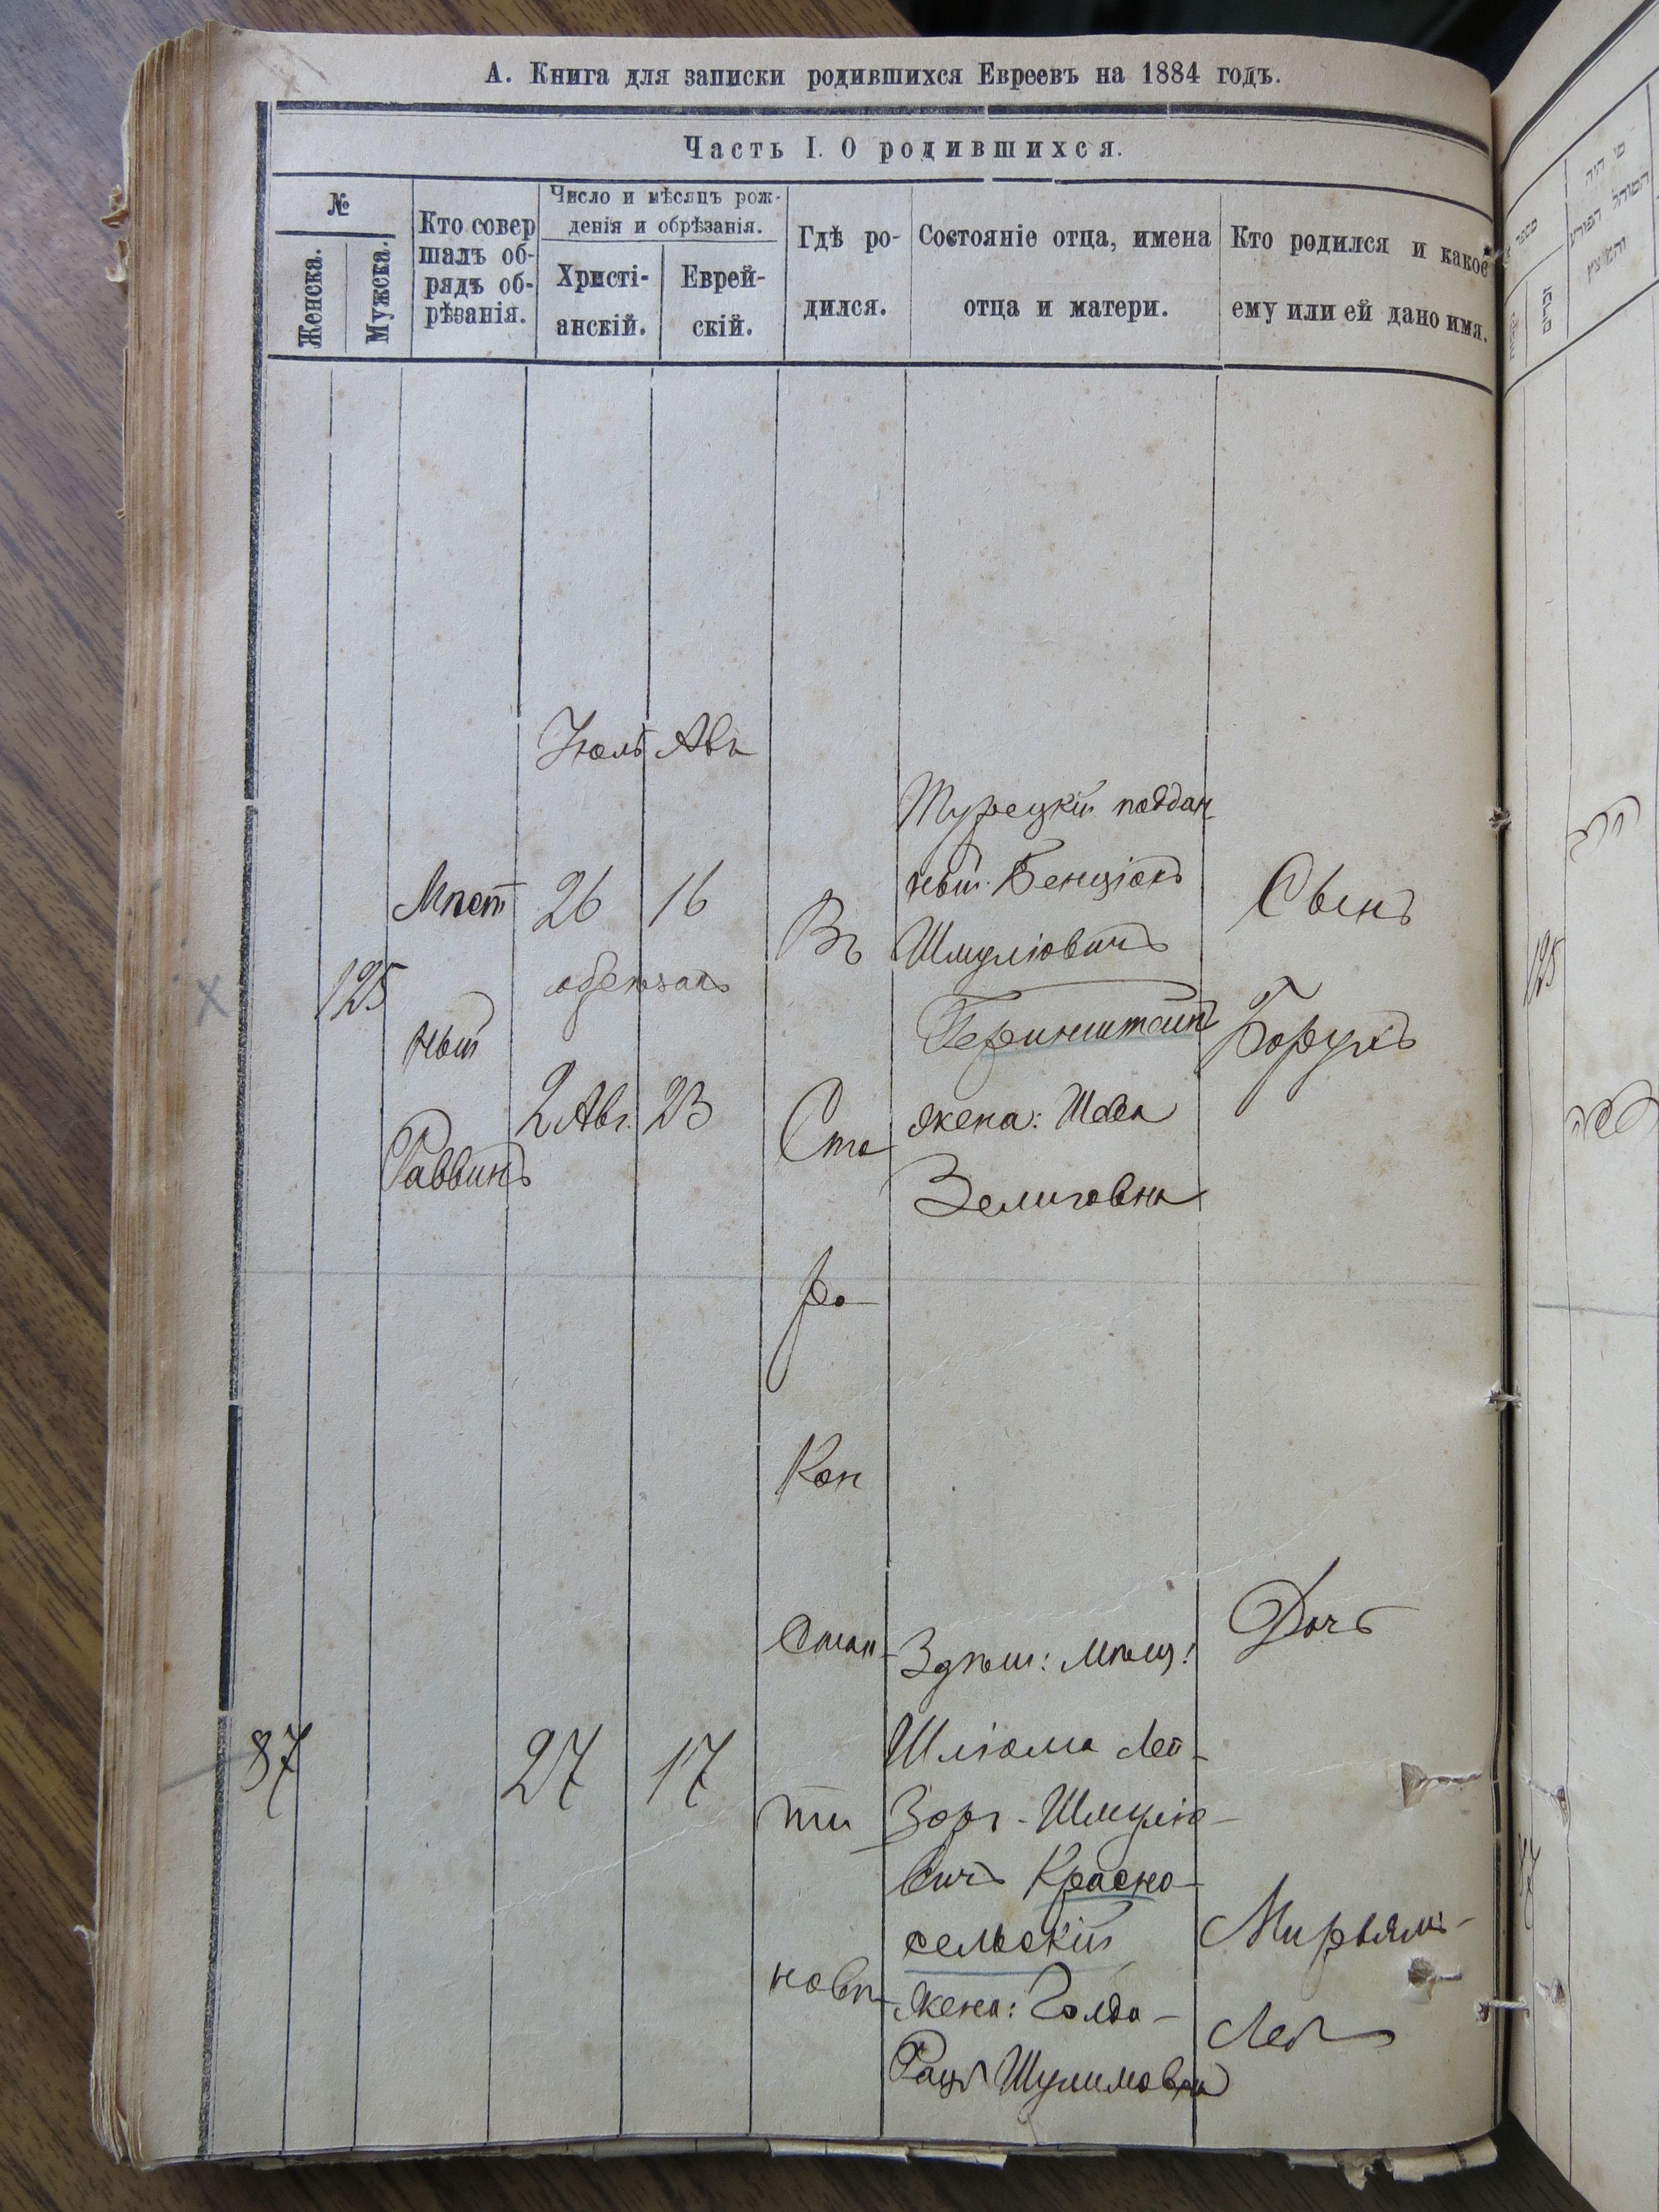 А. Книга для записки родившихся Евреевъ на 1884 годъ.
Часть I. О родившихся.
№
Женска.
Мужска.
Кто совер
шалъ об-
рядъ об-
рѣзанія.
Число и мѣсяцъ рож-
денія и обрѣзанія.
Христі-
анскій.
Еврей-
скій.
Гдѣ ро-
дился.
Состояніе отца, имена
отца и матери.
Кто родился и какое
ему или ей дано имя.
Іюль Авъ
125
Мѣст
ный
Раввинъ
26 16
обрѣзанъ
2 Авг. 23
Въ
Ста
ро
Кон
стан
ти
новѣ
Турецкій поддан
ный Бенціонъ
Шмуліовичъ
жена:
Зелиговна
Сынъ
Борухъ
87
27 17
Здѣш: Мѣщ:
Шліома Лей-
Зоръ-Шмуліо-
вичъ Красно-
сельскій
жена: Голда-
Шулимовна
Дочь
Мирьямъ-
Лея
125